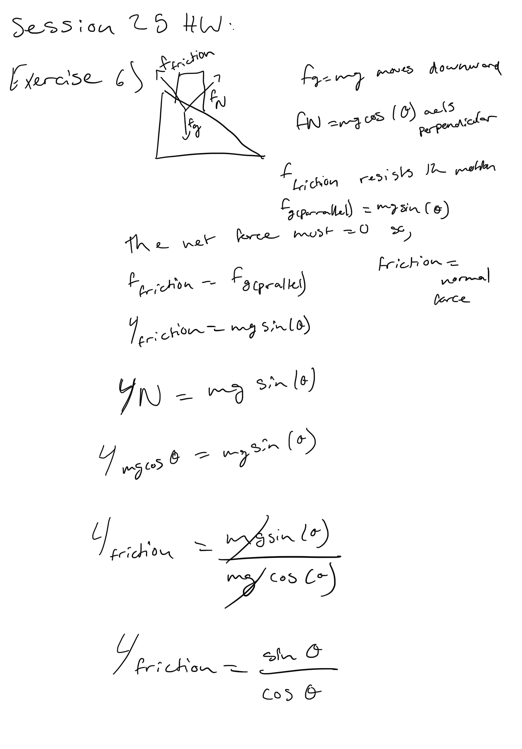 Session 25 HW:
Exercise 6)
f friction
fN
fg
fg=mg moves downward
fN = mg cos (θ) acts perpendicular
f friction resists the motion
fg(parrallel) = mg sin (θ)
the net force must = 0 so,
f friction = fg(prallel)
friction = normal force
μ friction = mg sin(θ)
μN = mg sin(θ)
μ mg cos θ = mg sin (θ)
μ friction = mg sin (θ) / mg cos (θ)
μ friction = sin θ / cos θ